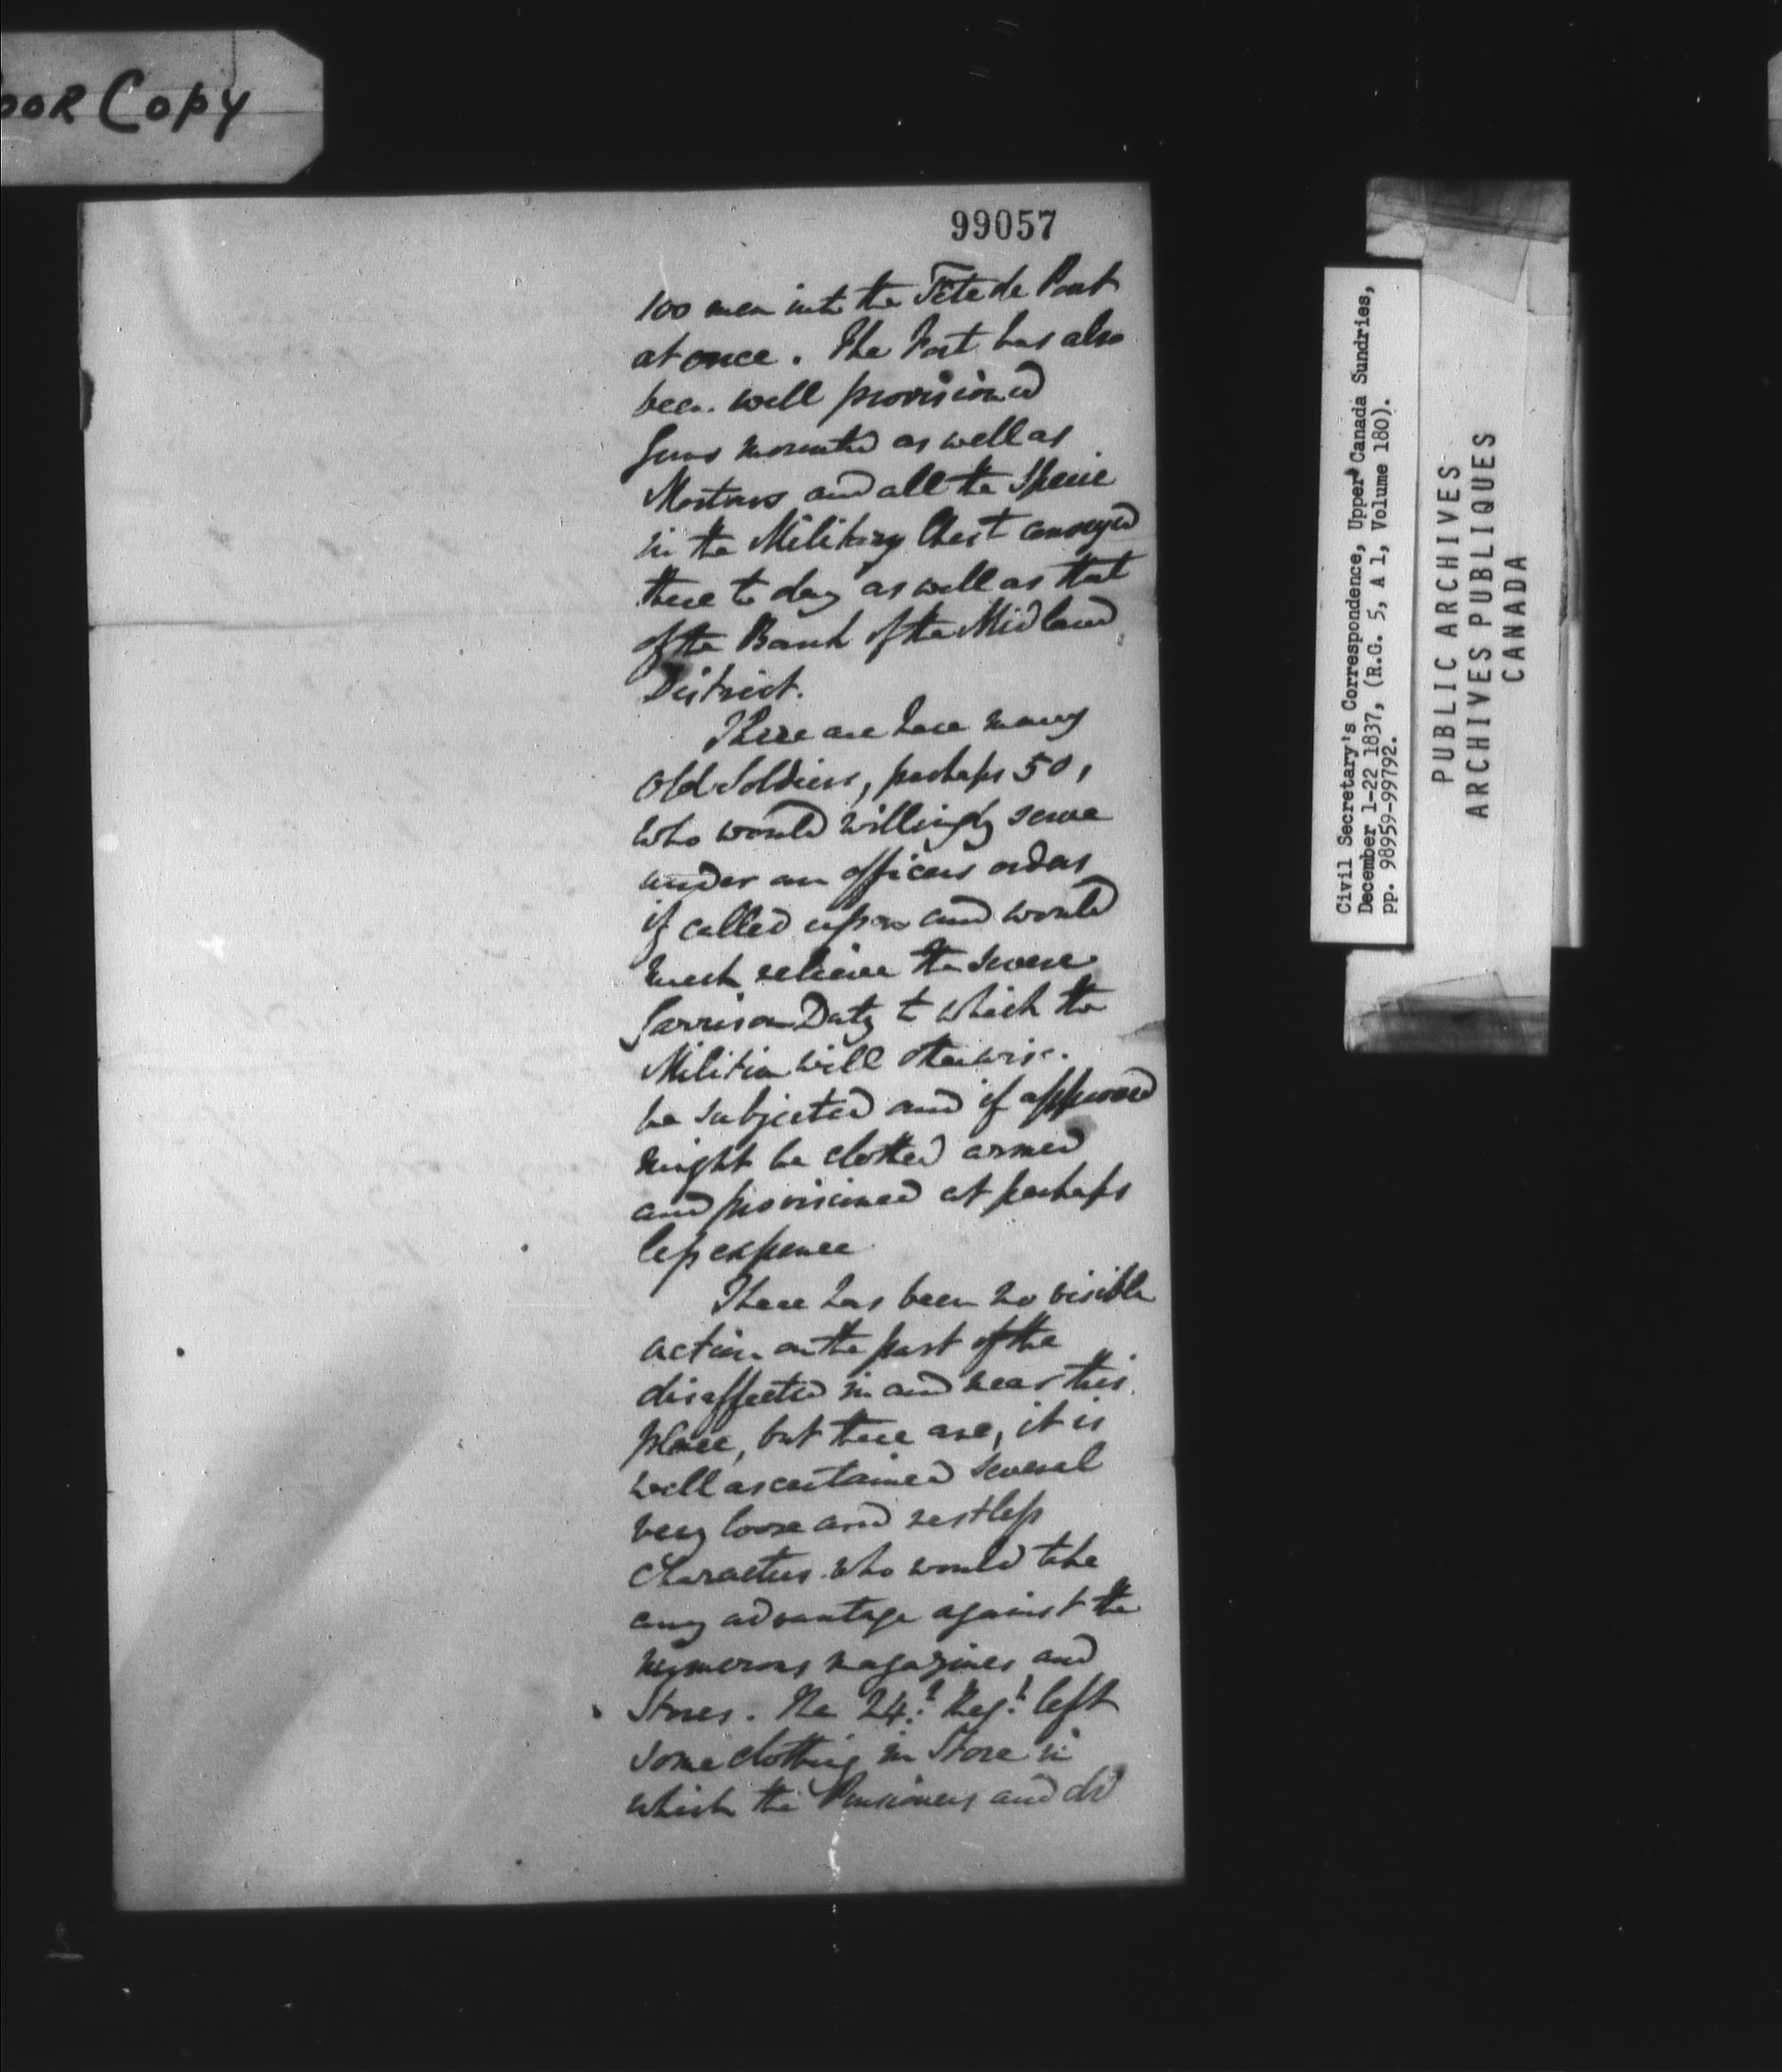 OOR COPY
99057
100 men into the Tête de Pont
at once. The Fort has also
been well provisioned
Guns mounted as well as
Mortars and all the Specie
in the Military Chest conveyed
there to day as well as that
of the Bank of the Midland
District.
There are here many
old Soldiers, perhaps 50,
who would willingly serve
under an officers orders
if called upon and would
much relieve the severe
Garrison Duty to which the
Militia will otherwise
be subjected and if approved
might be clothed armed
and provisioned at perhaps
less expence
There has been no visible
action on the part of the
disaffected in and near this
place, but there are, it is
well ascertained several
very loose and restless
characters who would take
any advantage against the
numerous magazines and
Stores. The 24th Regt left
some clothing in Store in
which the Pensioners and old
Civil Secretary's Correspondence, Upper Canada Sundries,
December 1-22 1837, (R.G. 5, A 1, Volume 180).
pp. 98959-99792.
PUBLIC ARCHIVES
ARCHIVES PUBLIQUES
CANADA